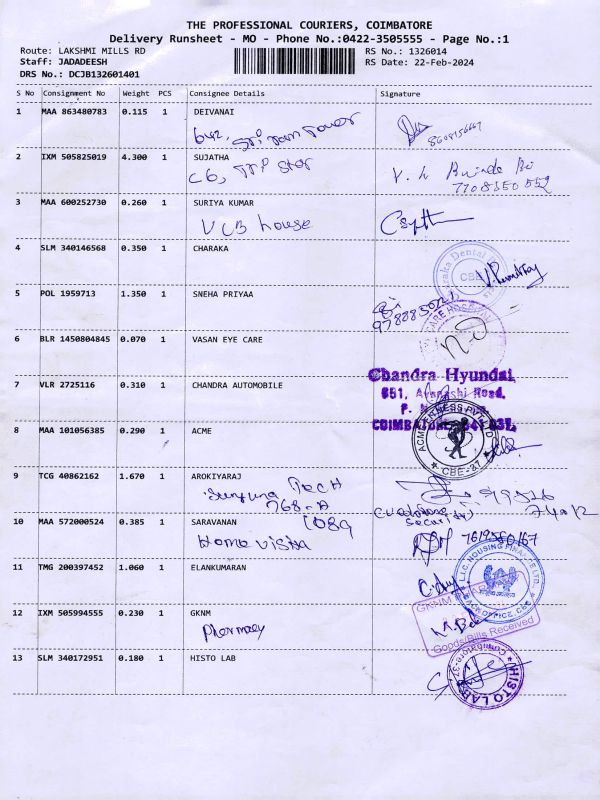 THE PROFESSIONAL COURIERS, COIMBATORE
Delivery Runsheet - MO - Phone No.:0422-3505555 - Page No.:1
Route: LAKSHMI MILLS RD RS No.: 1326014
Staff: JADADEESH RS Date: 22-Feb-2024
DRS No.: DCJB132601401
S No Consignment No Weight PCS Consignee Details Signature
1 MAA 863480783 0.115 1 DEIVANAI
2 IXM 505825019 4.300 1 SUJATHA
C6, TTP Star
7708350552
3 MAA 600252730 0.260 1 SURIYA KUMAR
VCB house
4 SLM 340146568 0.350 1 CHARAKA
CBE
5 POL 1959713 1.350 1 SNEHA PRIYAA
6 BLR 1450804845 0.070 1 VASAN EYE CARE
7 VLR 2725116 0.310 1 CHANDRA AUTOMOBILE
Chandra Hyundai,
651, Avanashi Road,
8 MAA 101056385 0.290 1 ACME
CBE-37
9 TCG 40862162 1.670 1 AROKIYARAJ
Tech
768-A
Security
10 MAA 572000524 0.385 1 SARAVANAN
1089
Home vista
7619580167
11 TMG 200397452 1.060 1 ELANKUMARAN
L.I.C. HOUSING FINANCE LTD.
BACK OFFICE, CBE
12 IXM 505994555 0.230 1 GKNM
Pharmacy
Goods/Bills Received
13 SLM 340172951 0.180 1 HISTO LAB
HISTO LAB
Coimbatore-37